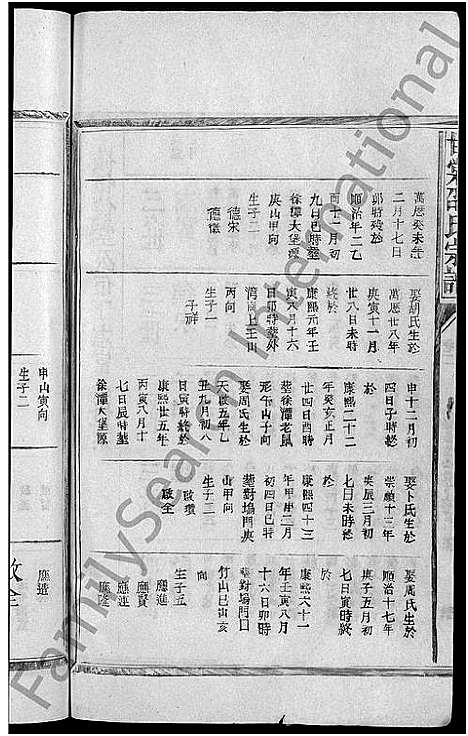 萬厯癸未年
二月十七日
卯時殁於
順治年二乙
酉十二月初
九日巳時塟
徐潭大堡源
庚山甲向
生子二
德宋
德儀
娶胡氏生於
萬厯廿八年
庚寅十一月
廿八日未時
終於
康熙元年壬
寅八月十六
日卯時塟外
灣周上壬山
丙向
生子一
子祥
申十二月初
四日子時終
於
康熙二十二
年癸亥正月
廿四日酉時
塟徐潭老鼠
形午山子向
娶周氏生於
天啟五年乙
丑九月初八
日寅時終於
康熙廿五年
丙寅八月十
七日辰時塟
徐潭大堡源
娶卜氏生於
崇禎十三年
庚辰三月初
七日未時終
於
康熙四十三
年甲申二月
初四日巳時
塟對塢門庚
山甲向
生子二
啟瓚
啟全
娶周氏生於
順治十七年
庚子五月初
七日寅時終
於
康熙六十一
年壬寅八月
十六日卯時
塟對塢門口
竹山巳山亥
向
生子五
應進
應賢
應連
應隆
申山寅向
生子二
應道
啟全
FamilySearch International